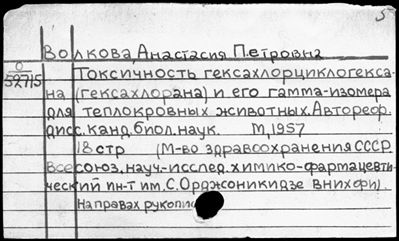 5
Волкова, Анастасия Петровна
О
52715
Токсичность гексахлорциклогекса-
на (гексахлорана) и его гамма-изомера
для теплокровных животных. Автореф.
дисс. канд. биол. наук. М., 1957
18 стр (М-во здравоохранения СССР.
Всесоюз. науч.-исслед. химико-фармацевти-
ческий ин-т им. С. Орджоникидзе ВНИХФИ).
На правах рукопис